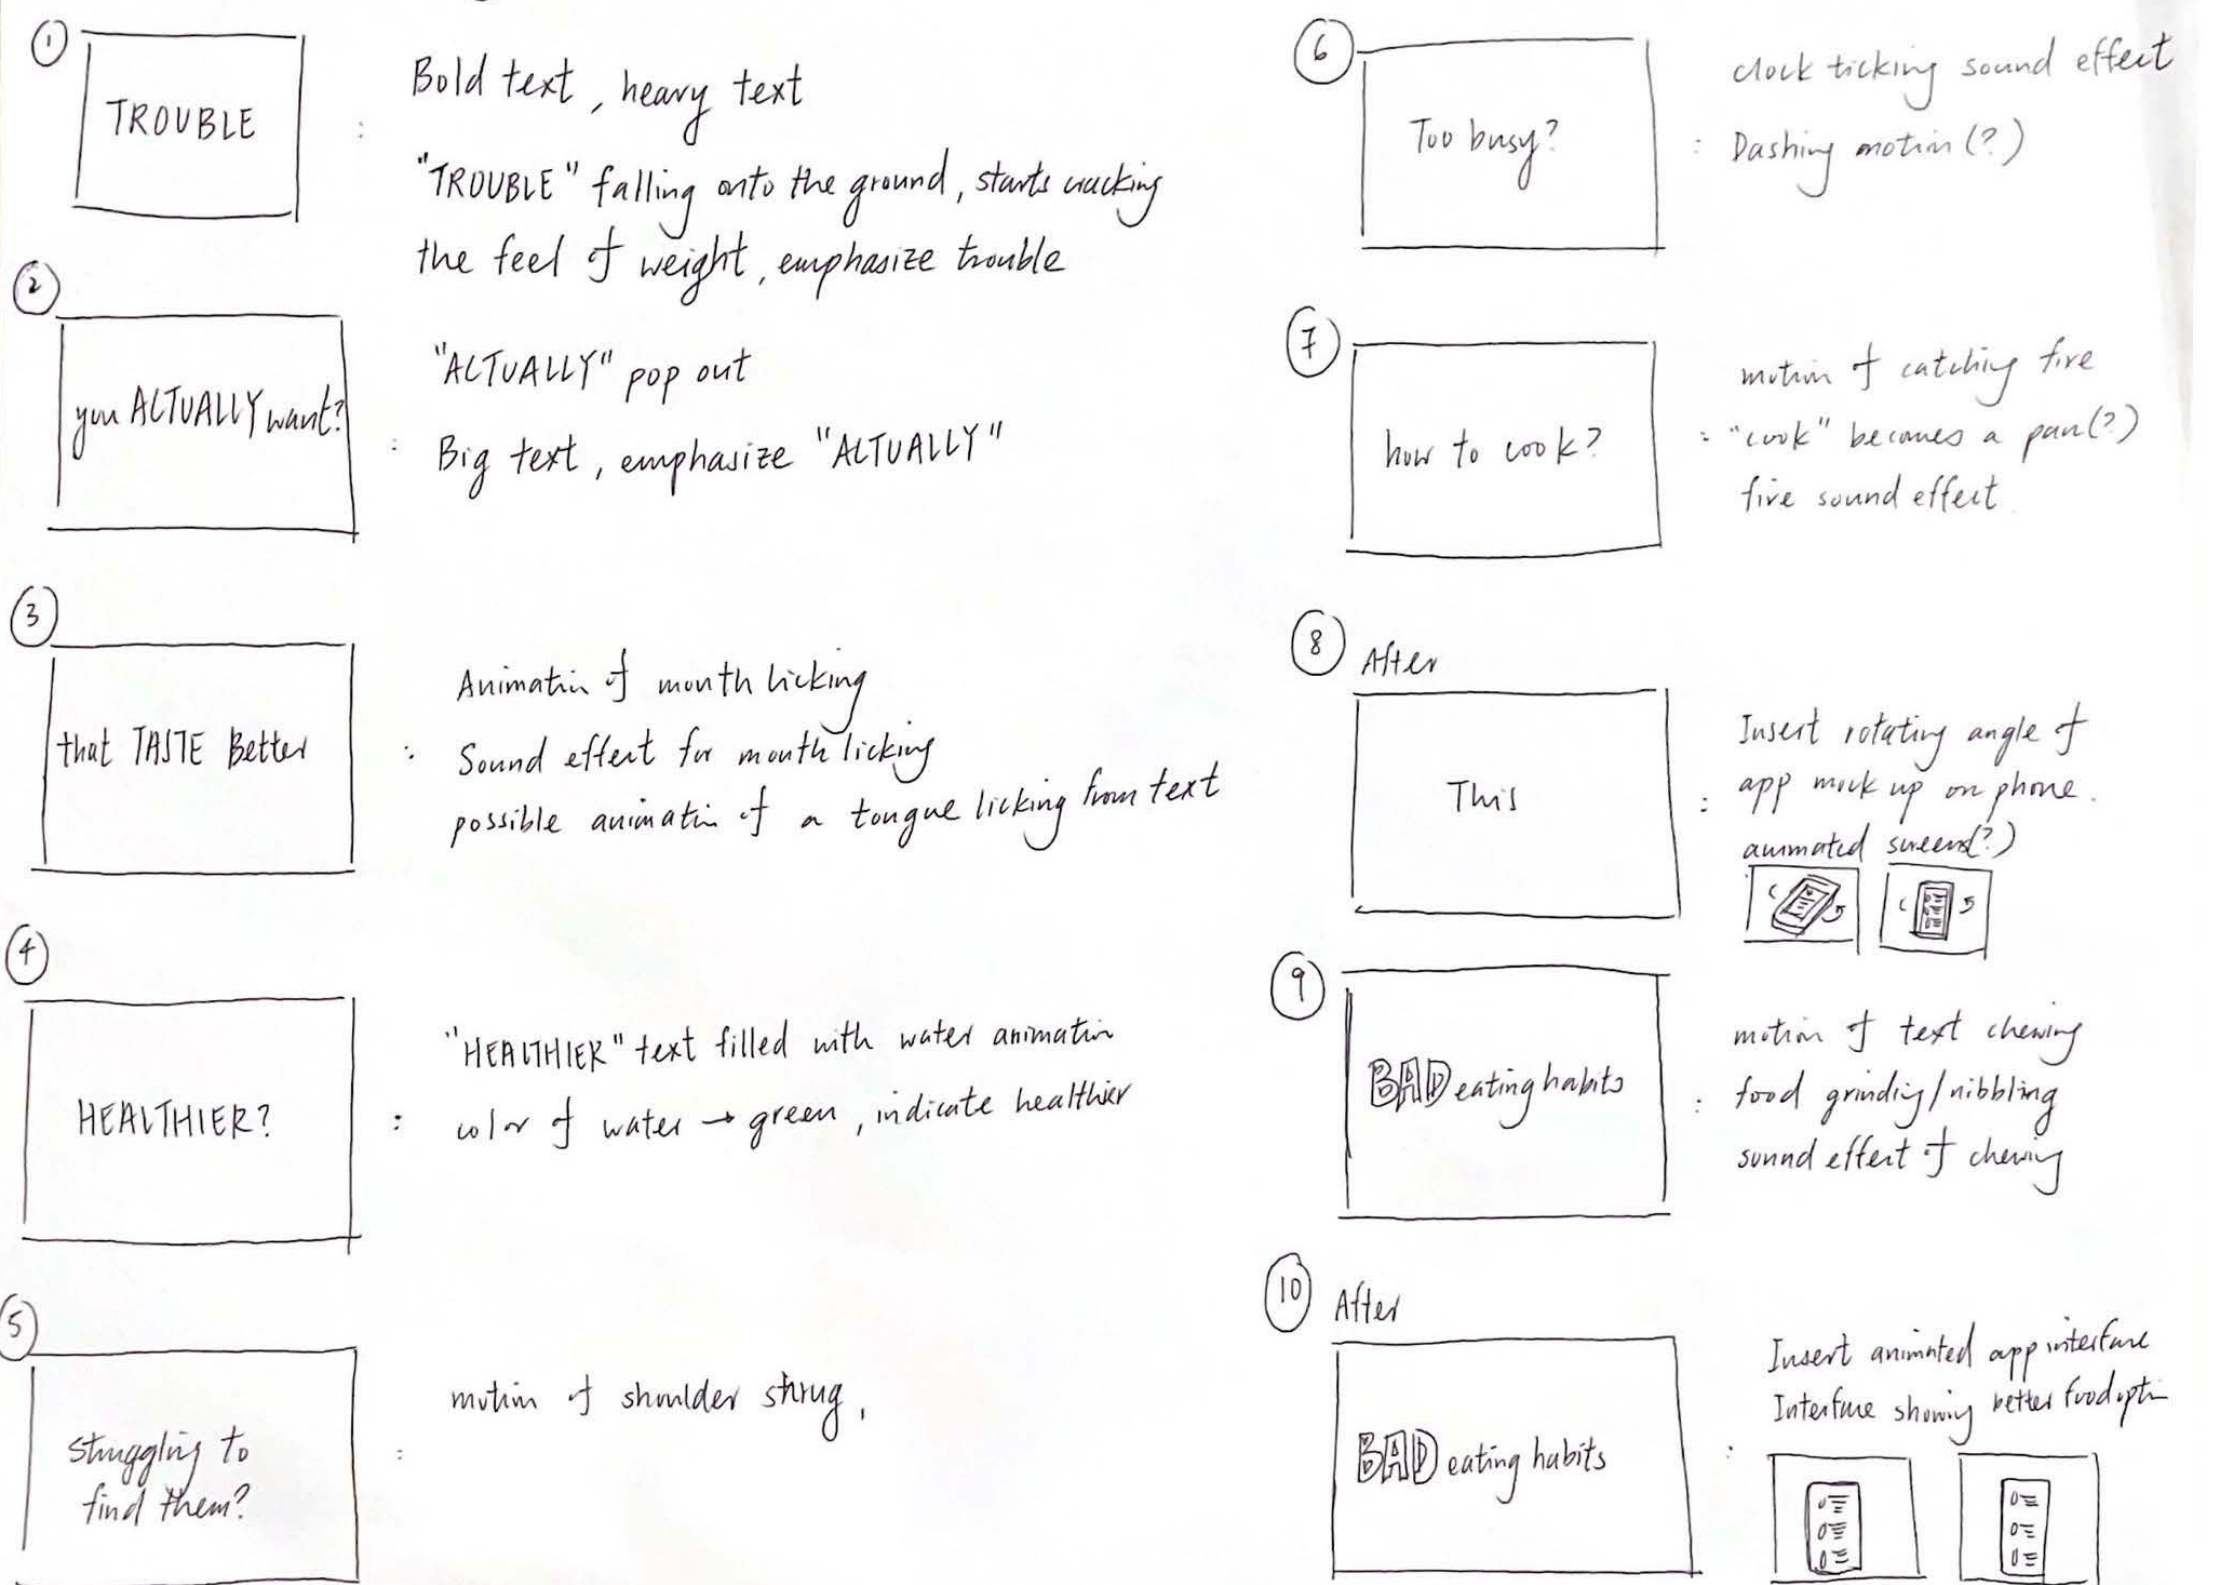 1
TROUBLE
:
Bold text, heavy text
"TROUBLE" falling onto the ground, starts cracking
the feel of weight, emphasize trouble
2
you ACTUALLY want?
:
"ACTUALLY" pop out
Big text, emphasize "ACTUALLY"
3
that TASTE Better
:
Animation of mouth licking
Sound effect for mouth licking
possible animation of a tongue licking from text
4
HEALTHIER?
:
"HEALTHIER" text filled with water animation
color of water → green, indicate healthier
5
struggling to
find them?
:
motion of shoulder shrug,
6
Too busy?
:
clock ticking sound effect
Dashing motion(?)
7
how to cook?
:
motion of catching fire
"cook" becomes a pan(?)
fire sound effect
8
After
This
:
Insert rotating angle of
app mock up on phone.
animated screens(?)
9
BAD eating habits
:
motion of text chewing
food grinding/nibbling
sound effect of chewing
10
After
BAD eating habits
:
Insert animated app interface
Interface showing better food option